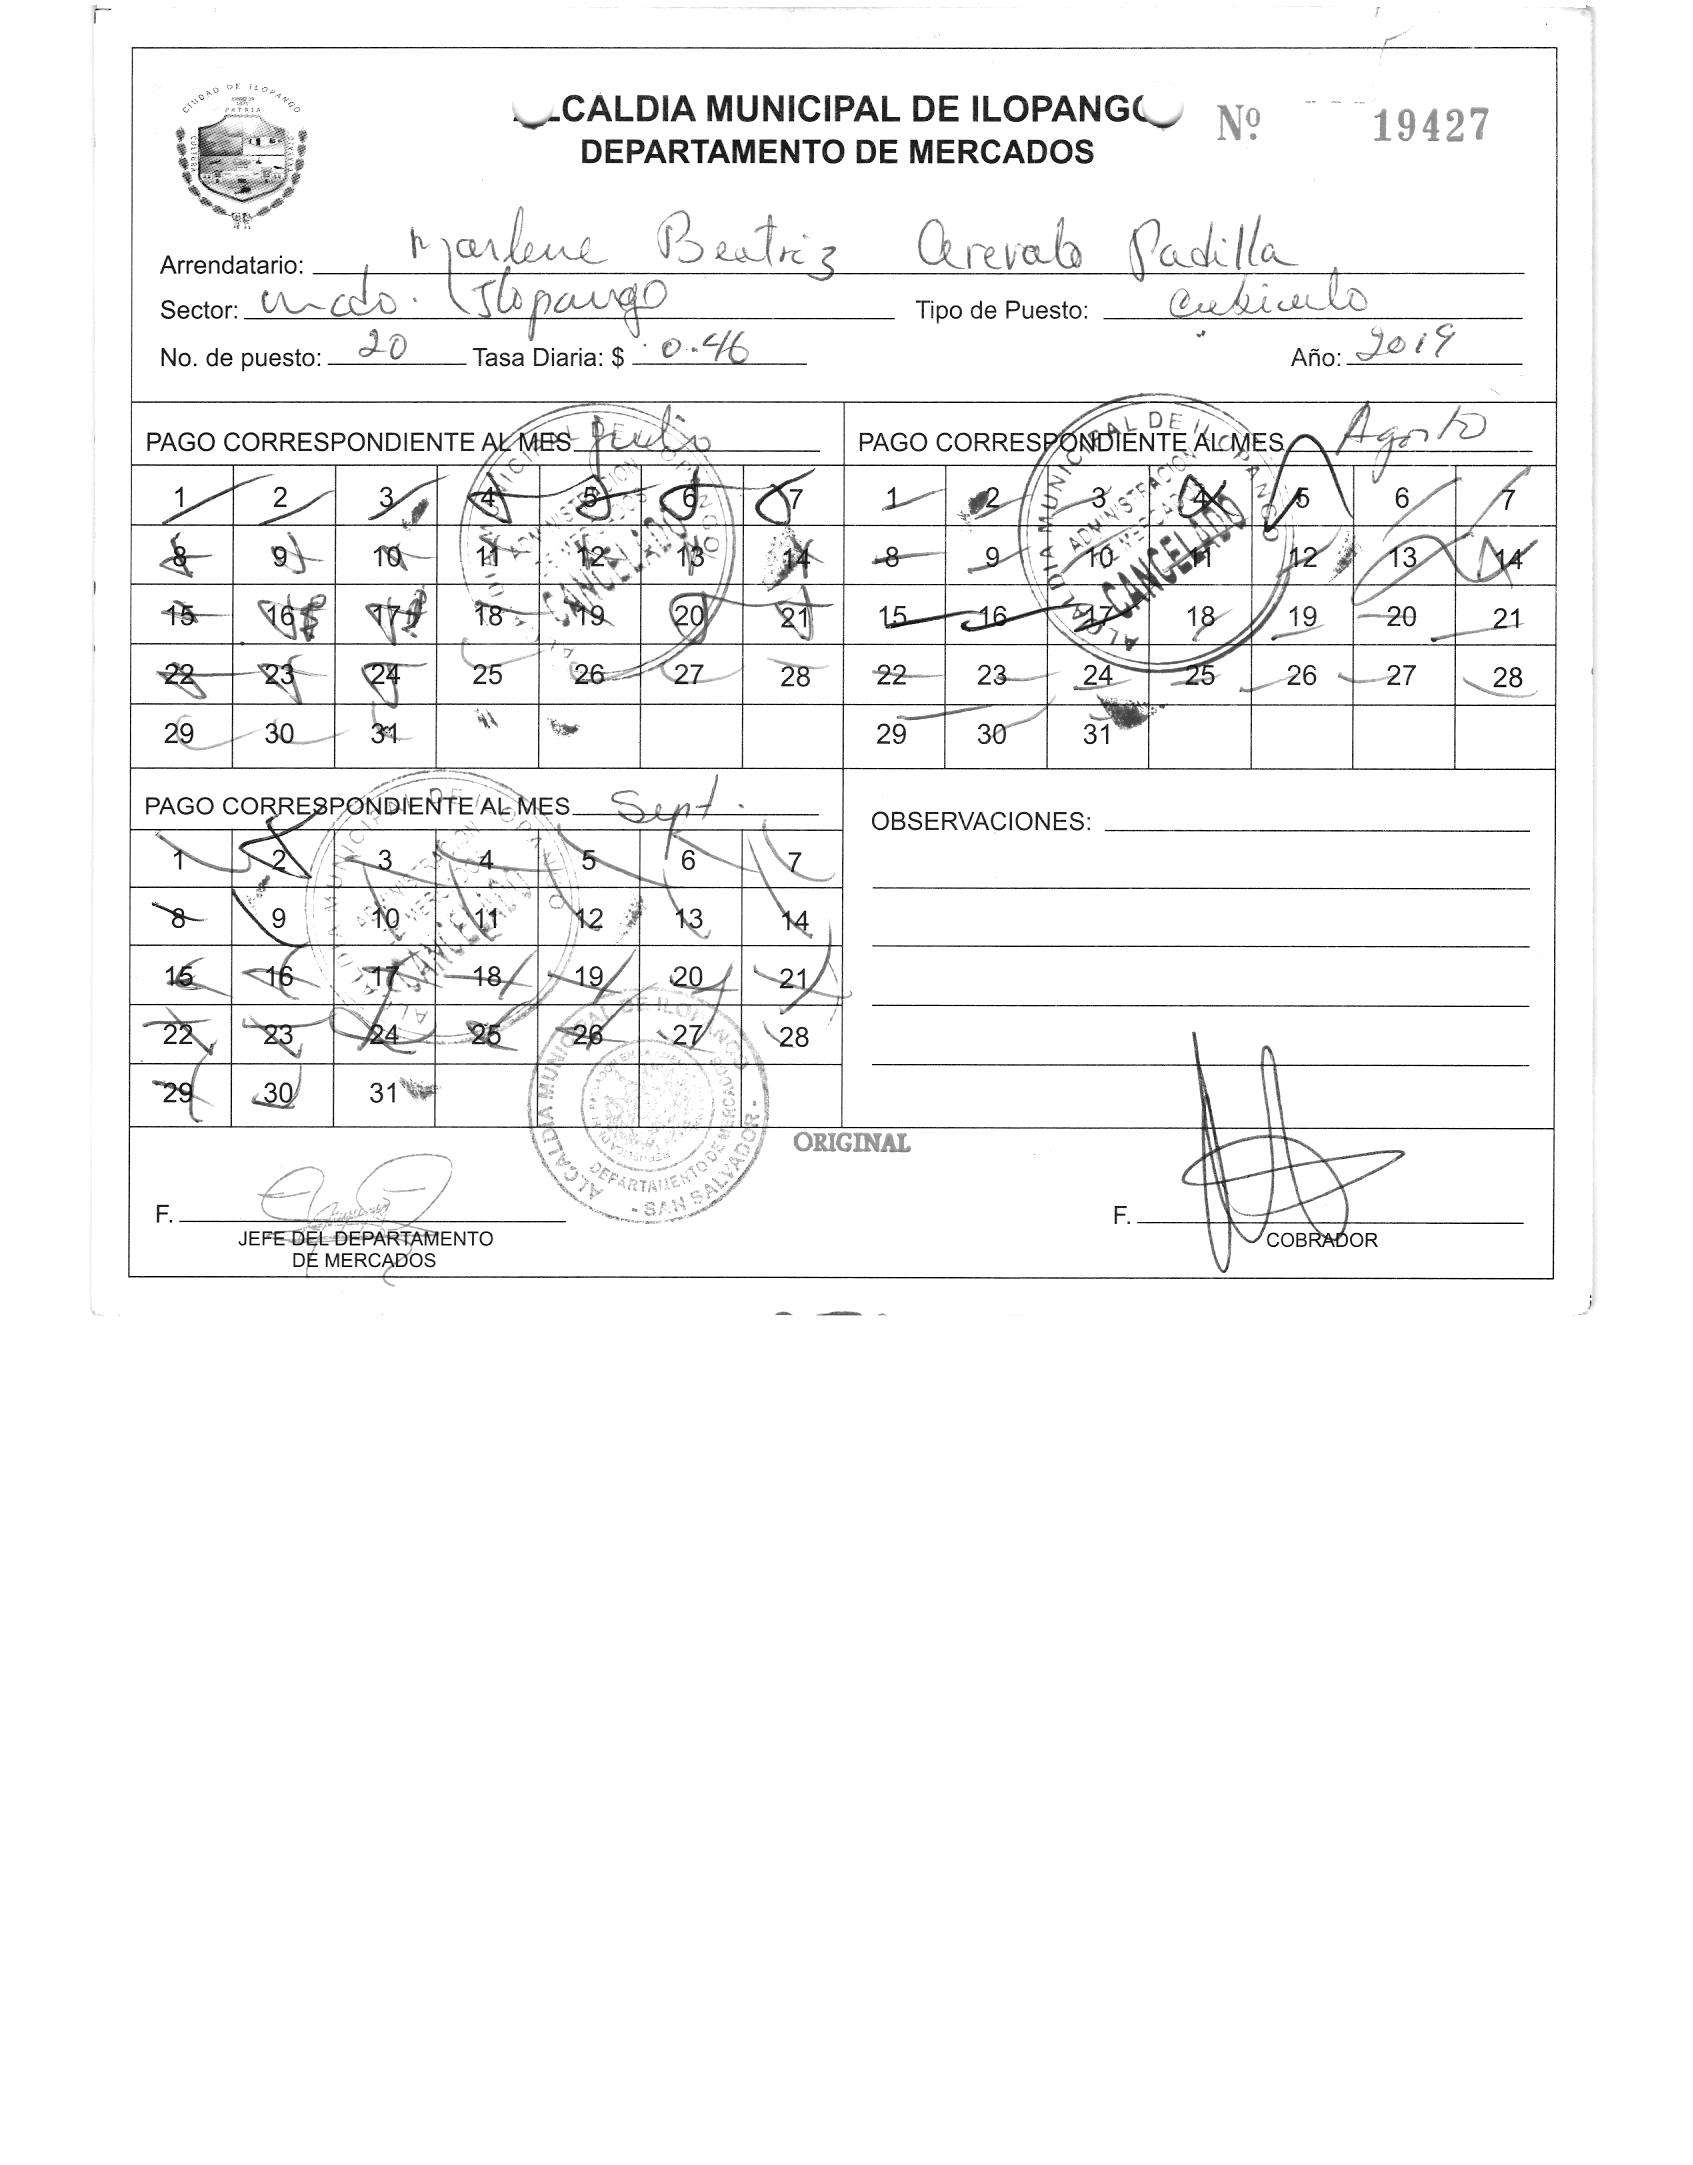 CIUDAD DE ILOPANGO
PATRIA
CULTURA
ALCALDIA MUNICIPAL DE ILOPANGO
DEPARTAMENTO DE MERCADOS
Nº 19427
Arrendatario: Marlene Beatriz Arevalo Padilla
Sector: mcdo. Ilopango Tipo de Puesto: cubiculo
No. de puesto: 20 Tasa Diaria: $ 0.46 Año: 2019
PAGO CORRESPONDIENTE AL MES Julio
1 2 3 4 5 6 7
8 9 10 11 12 13 14
15 16 17 18 19 20 21
22 23 24 25 26 27 28
29 30 31
ALCALDIA MUNICIPAL DE ILOPANGO
ADMINISTRACION
DE MERCADOS
CANCELADO
PAGO CORRESPONDIENTE AL MES Agosto
1 2 3 4 5 6 7
8 9 10 11 12 13 14
15 16 17 18 19 20 21
22 23 24 25 26 27 28
29 30 31
ALCALDIA MUNICIPAL DE ILOPANGO
ADMINISTRACION
DE MERCADOS
CANCELADO
PAGO CORRESPONDIENTE AL MES Sept.
1 2 3 4 5 6 7
8 9 10 11 12 13 14
15 16 17 18 19 20 21
22 23 24 25 26 27 28
29 30 31
ALCALDIA MUNICIPAL DE ILOPANGO
ADMINISTRACION
DE MERCADOS
CANCELADO
OBSERVACIONES:
ALCALDIA MUNICIPAL DE ILOPANGO
DEPARTAMENTO DE MERCADOS
- SAN SALVADOR -
ORIGINAL
F.
JEFE DEL DEPARTAMENTO
DE MERCADOS
F.
COBRADOR